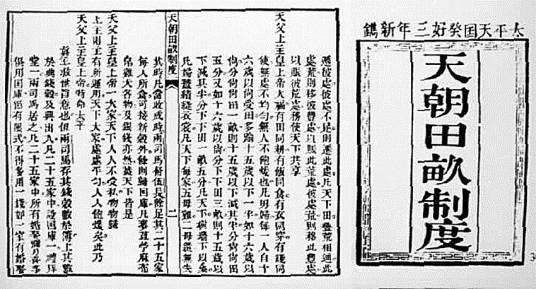 太平天囯癸好三年新鐫
天朝田畝制度
遷彼處彼處不足則遷此處凡天下田豐荒相通此
處荒則移彼豐處以賑此荒處彼處荒則移此豐處
以賑彼荒處務使天下共享
天父上主皇上帝大福有田同耕有飯同食有衣同穿有錢同
使無處不均勻無人不飽煖也凡男婦每一人自十
六歲以尚受田多踰十五歲以下一半如十六歲以
尚分尚尚田一畝則十五歲以下減其半分尚尚田
五分又如十六歲以尚分下下田三畝則十五歲以
下減其半分下下田一畝五分凡天下樹牆下以桑
凡婦蠶績縫衣裳凡天下每家五母雞二母彘無失
天朝田畝制度
二
其時凡當收成時兩司馬督伍長除足其二十五家
每人所食可接新穀外餘則歸囯庫凡麥豆苧麻布
帛雞犬各物及銀錢亦然蓋天下皆是
天父上主皇上帝一大家天下人人不受私物物歸
上主則主有所運用天下大家處處平勻人人飽煖矣此乃
天父上主皇上帝特命太平
真主救世旨意也但兩司馬存其錢穀數於簿上其數
於典錢穀及典出入凡二十五家中設囯庫一禮拜
堂一兩司馬居之凡二十五家中所有婚娶彌月喜事
俱用囯庫但有限式不得多用一錢如一家有婚娶